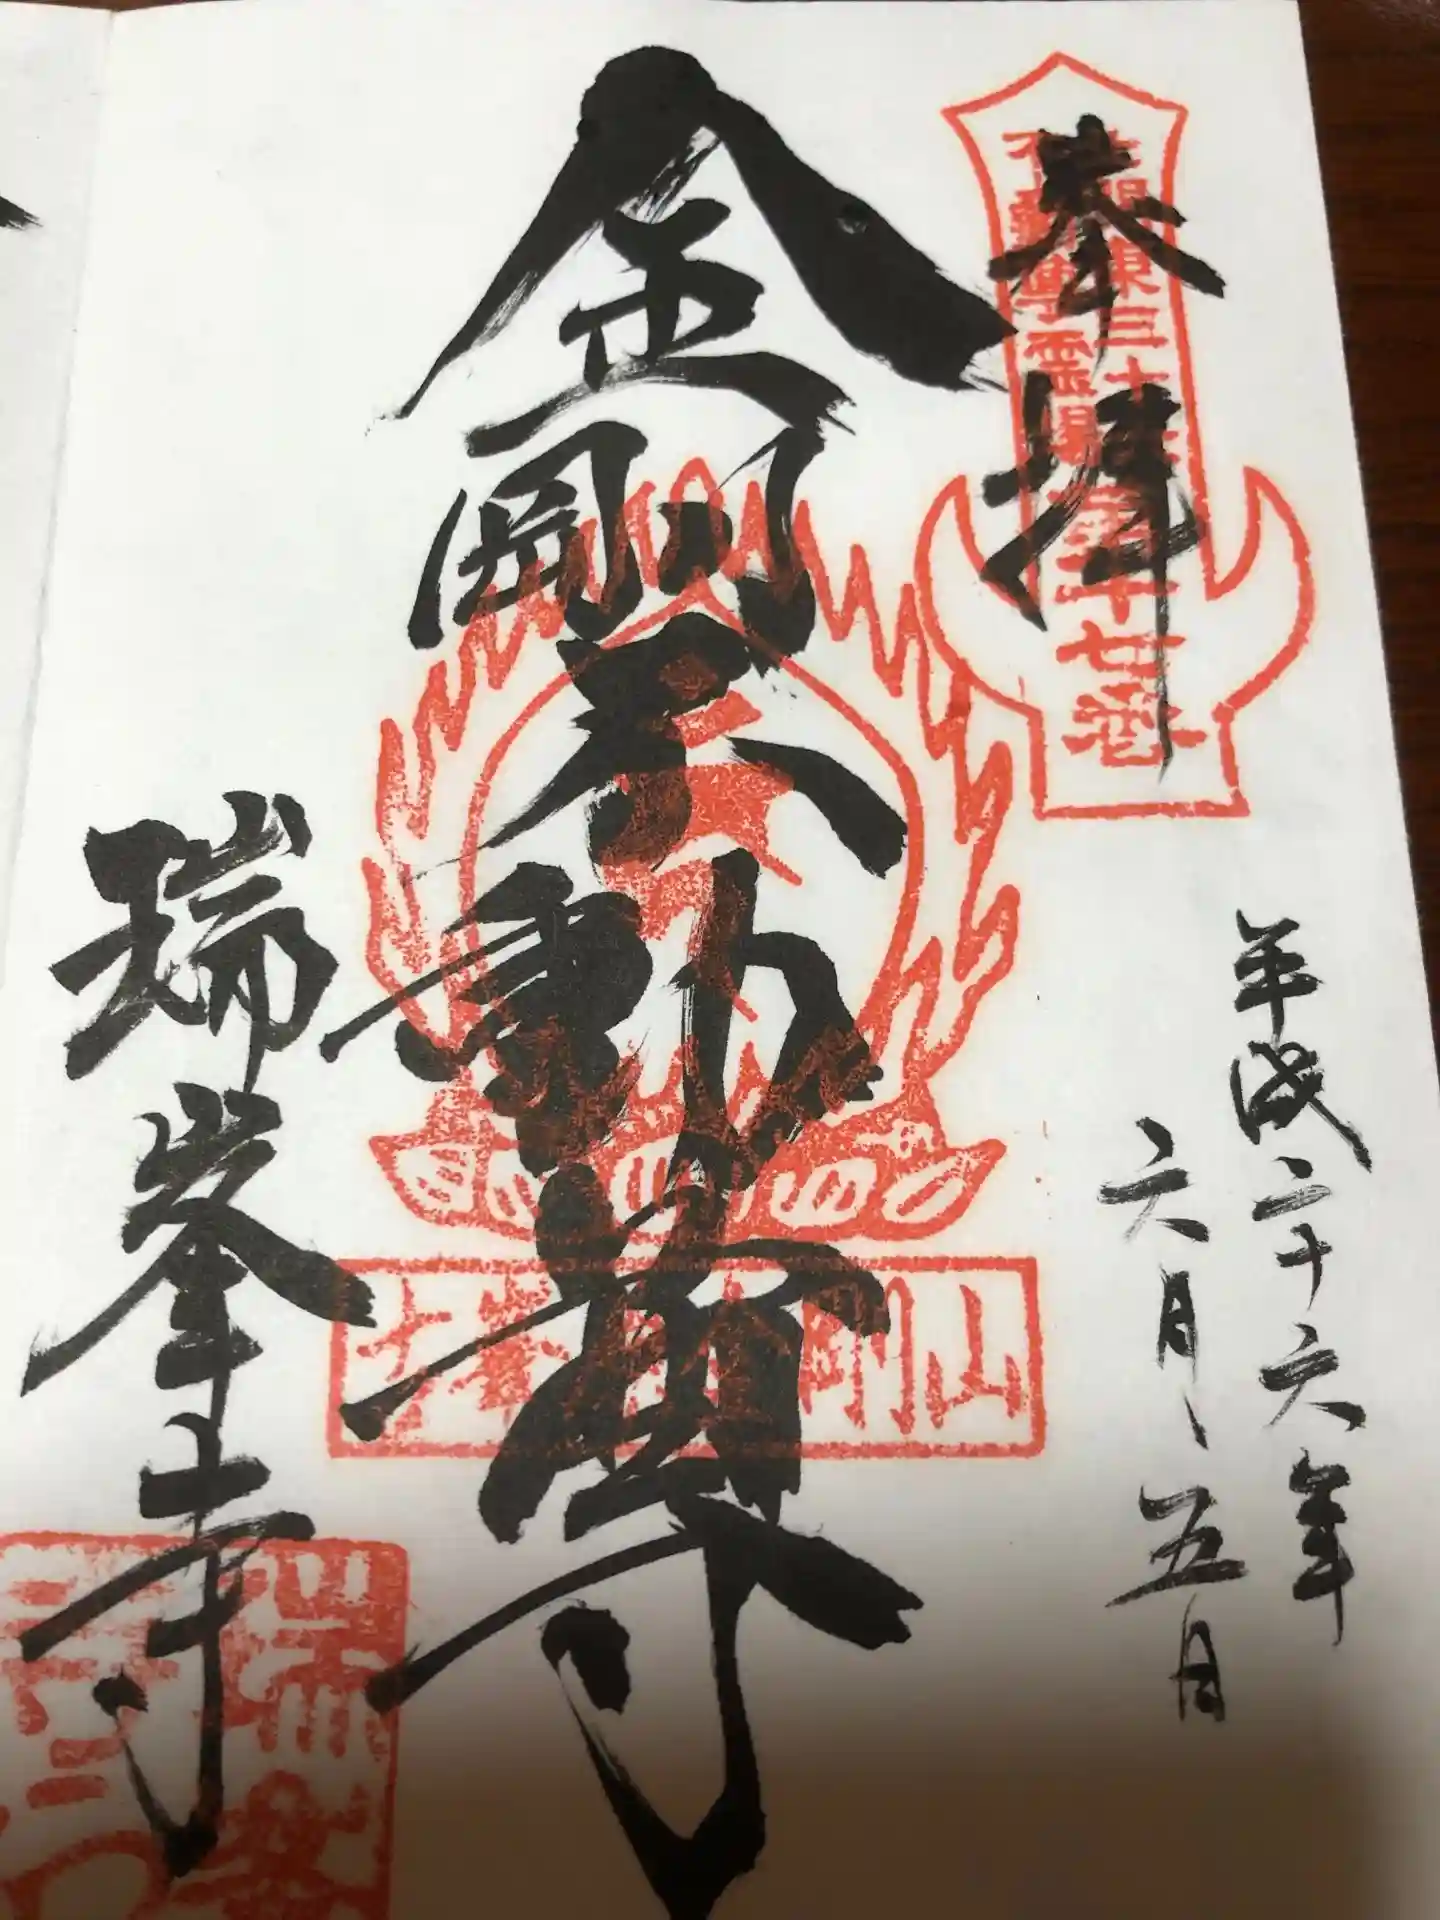 奉拝
北関東三十六
不動尊霊場
第十七番
平成二十六年
六月、五日
金剛不動尊
剛山
瑞峯寺